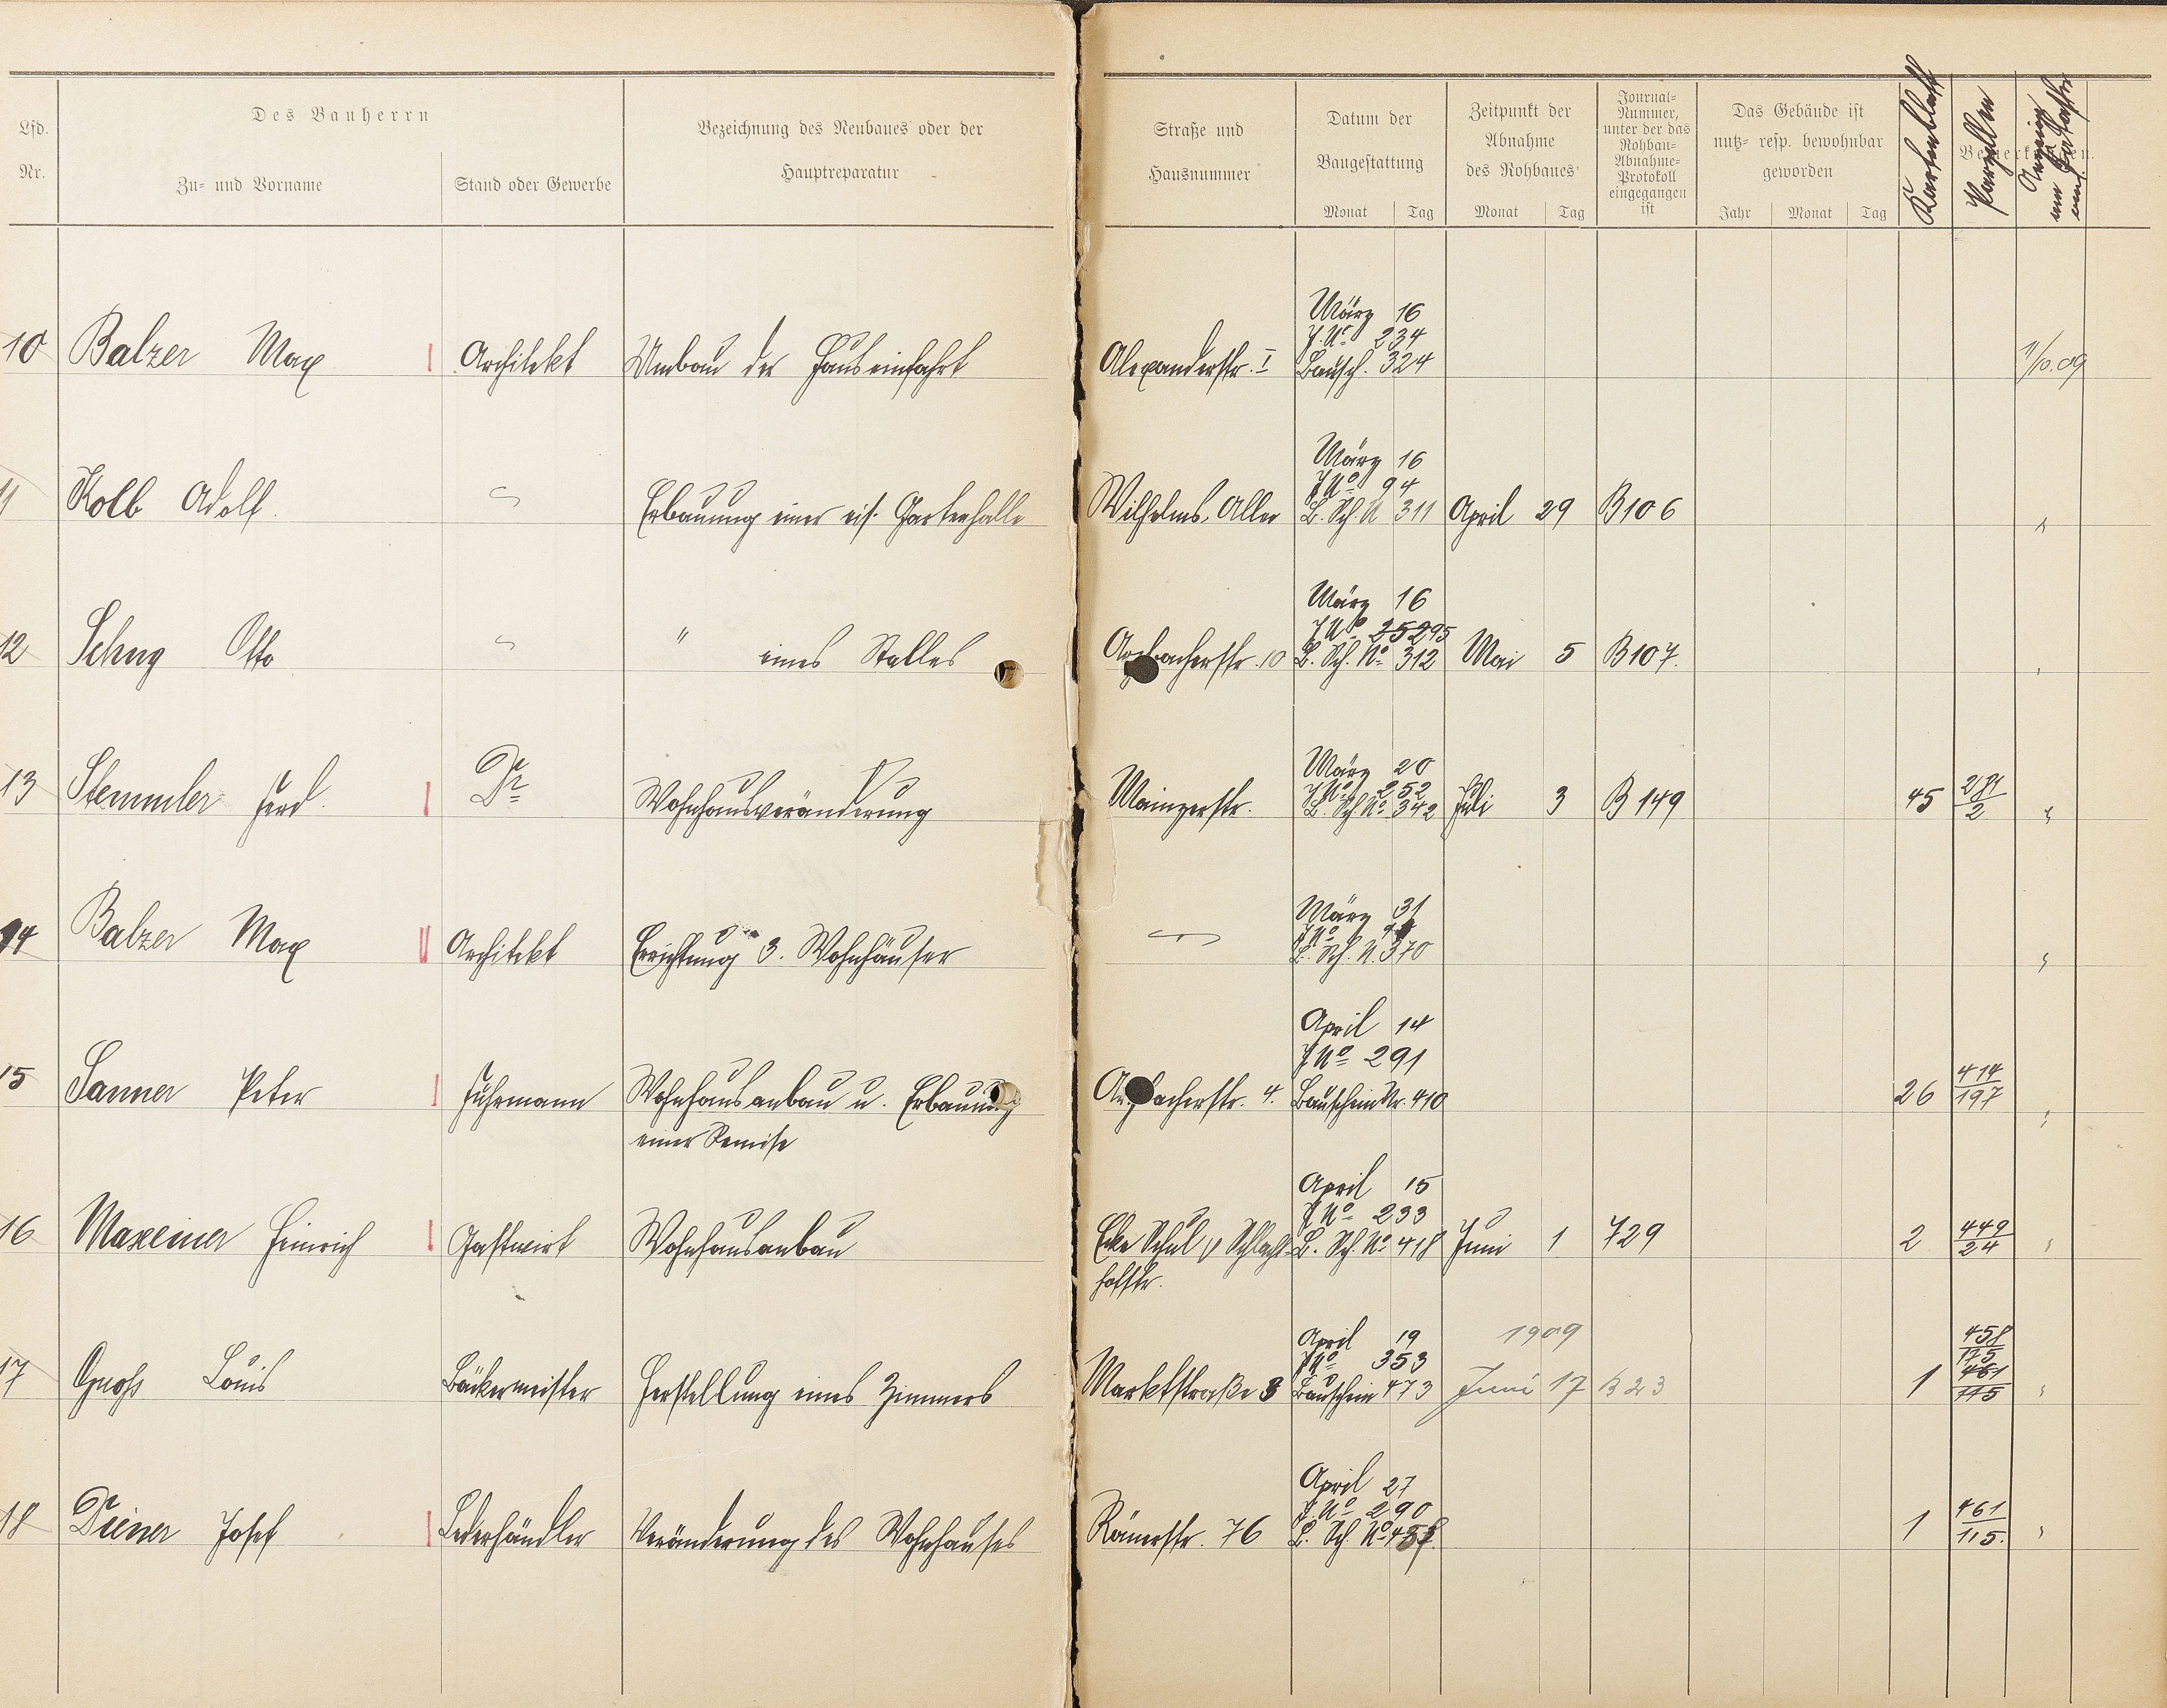 Des Bauherrn
Lfd. Nr.
Zu- und Vorname
Stand oder Gewerbe
Bezeichnung des Neubaues oder der Hauptreparatur
Straße und Hausnummer
Datum der Baugestattung
Monat Tag
Zeitpunkt der Abnahme des Rohbaues
Monat Tag
Journal-Nummer, unter der das Rohbau-Abnahme-Protokoll eingegangen ist
Das Gebäude ist nutz- resp. bewohnbar geworden
Jahr Monat Tag
Bemerkungen.
Kartenblatt
Parzellen
März 16
J. No 234
10 Balzer Max Architekt Umbau der Hauseinfahrt Alexanderstr. I Bausch. 324 1/10.09
März 16
J No 94
11 Kolb Adolf. Erbauung einer eis. Gartenhalle Wilhelms-Allee B. Sch. N 311 April 29 B 106 "
März 16
J No 25295
12 Schug Otto " eines Stalles bacherstr. 10 B. Sch. No 312 Mai 5 B 107.
März 20
J No 252
13 Stemmler Ferd. Dr Wohnhausveränderung Mainzerstr. B. Sch. No 342 Juli 3 B 149 45 281/2 "
März 31
J No
14 Balzer Max Architekt Errichtung 3. Wohnhäuser B. Sch. N. 370 "
April 14
J No 291
15 Sanner Peter Fuhrmann Wohnhausanbau u. Erbauung acherstr. 4. Bauschein Nr. 410 26 414/197 "
einer Remise
April 15
J No 233
16 Maxeiner Heinrich Gastwirt Wohnhausanbau Ecke Schul u Schlacht- B. Sch. No 418 Juni 1 729 2 449/24 "
hofstr.
April 19 1909 458/175
J No 353
17 Gnoss Louis Bäckermeister Herstellung eines Zimmers Marktstraße 8 Bauschein 473 Juni 17 B 23 1 461/115 "
April 27
J. No 290
18 Diener Josef Lederhändler Veränderung des Wohnhauses Römerstr. 76 B. Sch. No 1 461/115. "